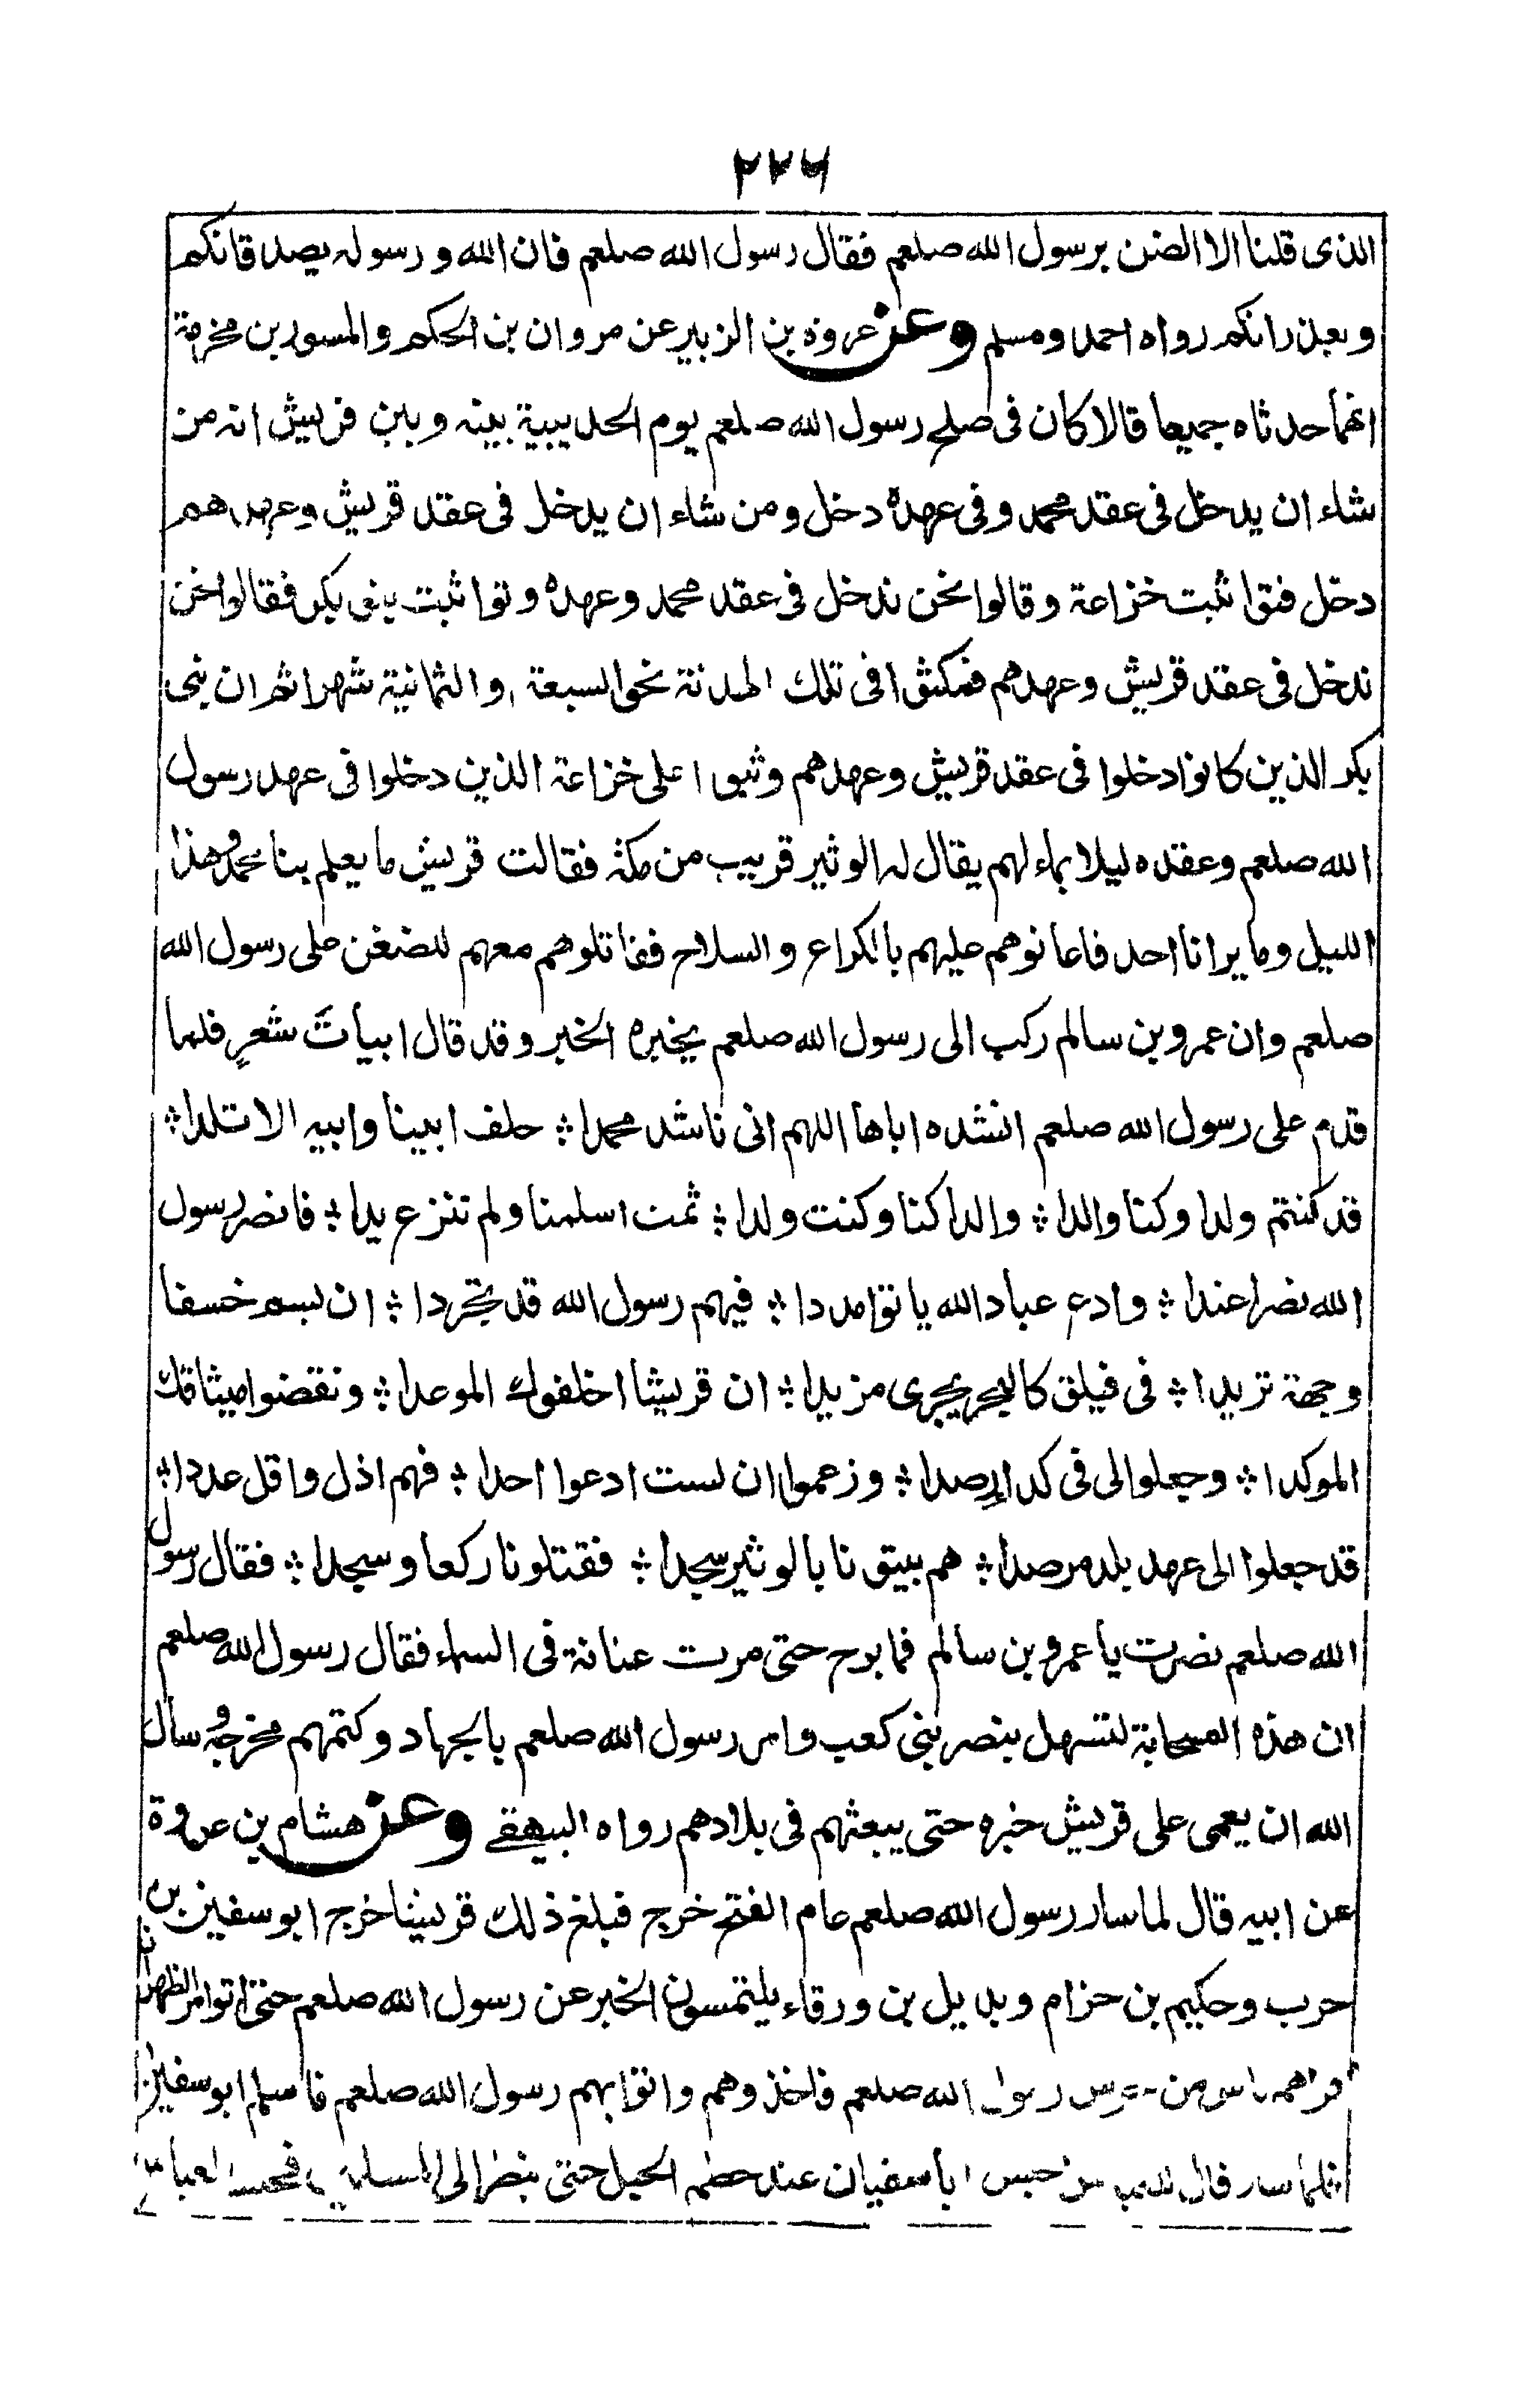 ٢٢٦
الذى قلنا الا الضن برسول الله صلعم فقال رسول الله صلعم فان الله و رسوله يصدقانكم
ويعذرانكم رواه احمد ومسلم وعن عروة بن الزبير عن مروان بن الحكم والمسور بن مخرمة
انهما حدثاه جميعا قالا كان فى صلح رسول الله صلعم يوم الحديبية بينه وبين قريش انه من
شاء ان يدخل فى عقد محمد وفى عهده دخل ومن شاء ان يدخل فى عقد قريش وعهدهم
دخل فتواثبت خزاعة وقالوا نحن ندخل فى عقد محمد وعهده وتواثبت بنى بكر فقالوا نحن
ندخل فى عقد قريش وعهدهم فمكثوا فى تلك الهدنة نحو السبعة والثمانية شهرا ثم ان بنى
بكر الذين كانوا دخلوا فى عقد قريش وعهدهم وثبوا على خزاعة الذين دخلوا فى عهد رسول
الله صلعم وعقده ليلا بماء لهم يقال له الوثير قريب من مكة فقالت قريش ما يعلم بنا محمد وهذا
الليل وما يرانا احد فاعانوهم عليهم بالكراع والسلاح فقاتلوهم معهم للضغن على رسول الله
صلعم وان عمرو بن سالم ركب الى رسول الله صلعم يخبره الخبر وقد قال ابيات شعر فلما
قدم على رسول الله صلعم انشده اياها اللهم انى ناشد محمدا ؞ حلف ابينا وابيه الاتلدا ؞
قد كنتم ولدا وكنا والدا ؞ والدا كنا وكنت ولدا ؞ ثمت اسلمنا ولم ننزع يدا ؞ فانصر رسول
الله نصرا عندا ؞ وادع عباد الله ياتوا مددا ؞ فيهم رسول الله قد تجردا ؞ ان سيم خسفا
وجهه تربدا ؞ فى فيلق كالبحر يجرى مزبدا ؞ ان قريشا اخلفوك الموعدا ؞ ونقضوا ميثاقك
الموكدا ؞ وجعلوا لى فى كداء رصدا ؞ وزعموا ان لست ادعوا احدا ؞ فهم اذل واقل عددا ؞
قد جعلوا لى عهد بلد مرصدا ؞ هم بيتونا بالوثير سجدا ؞ فقتلونا ركعا وسجدا ؞ فقال رسول
الله صلعم نصرت يا عمرو بن سالم فما برح حتى مرت عنانة فى السماء فقال رسول الله صلعم
ان هذه السحابة لتستهل بنصر بنى كعب وامر رسول الله صلعم بالجهاد وكتمهم مخرجه وسال
الله ان يعمى على قريش خبره حتى يبعثهم فى بلادهم رواه البيهقى وعن هشام بن عروة
عن ابيه قال لما سار رسول الله صلعم عام الفتح خرج فبلغ ذلك قريشا خرج ابو سفين بن
حرب وحكيم بن حزام وبديل بن ورقاء يلتمسون الخبر عن رسول الله صلعم حتى اتوا مر الظهران
فراهم ناس من حرس رسول الله صلعم فاخذوهم واتوا بهم رسول الله صلعم فاسلم ابو سفين
فلما سار قال للعباس احبس ابا سفيان عند حطم الخيل حتى ينظر الى المسلمين فحبسه العباس